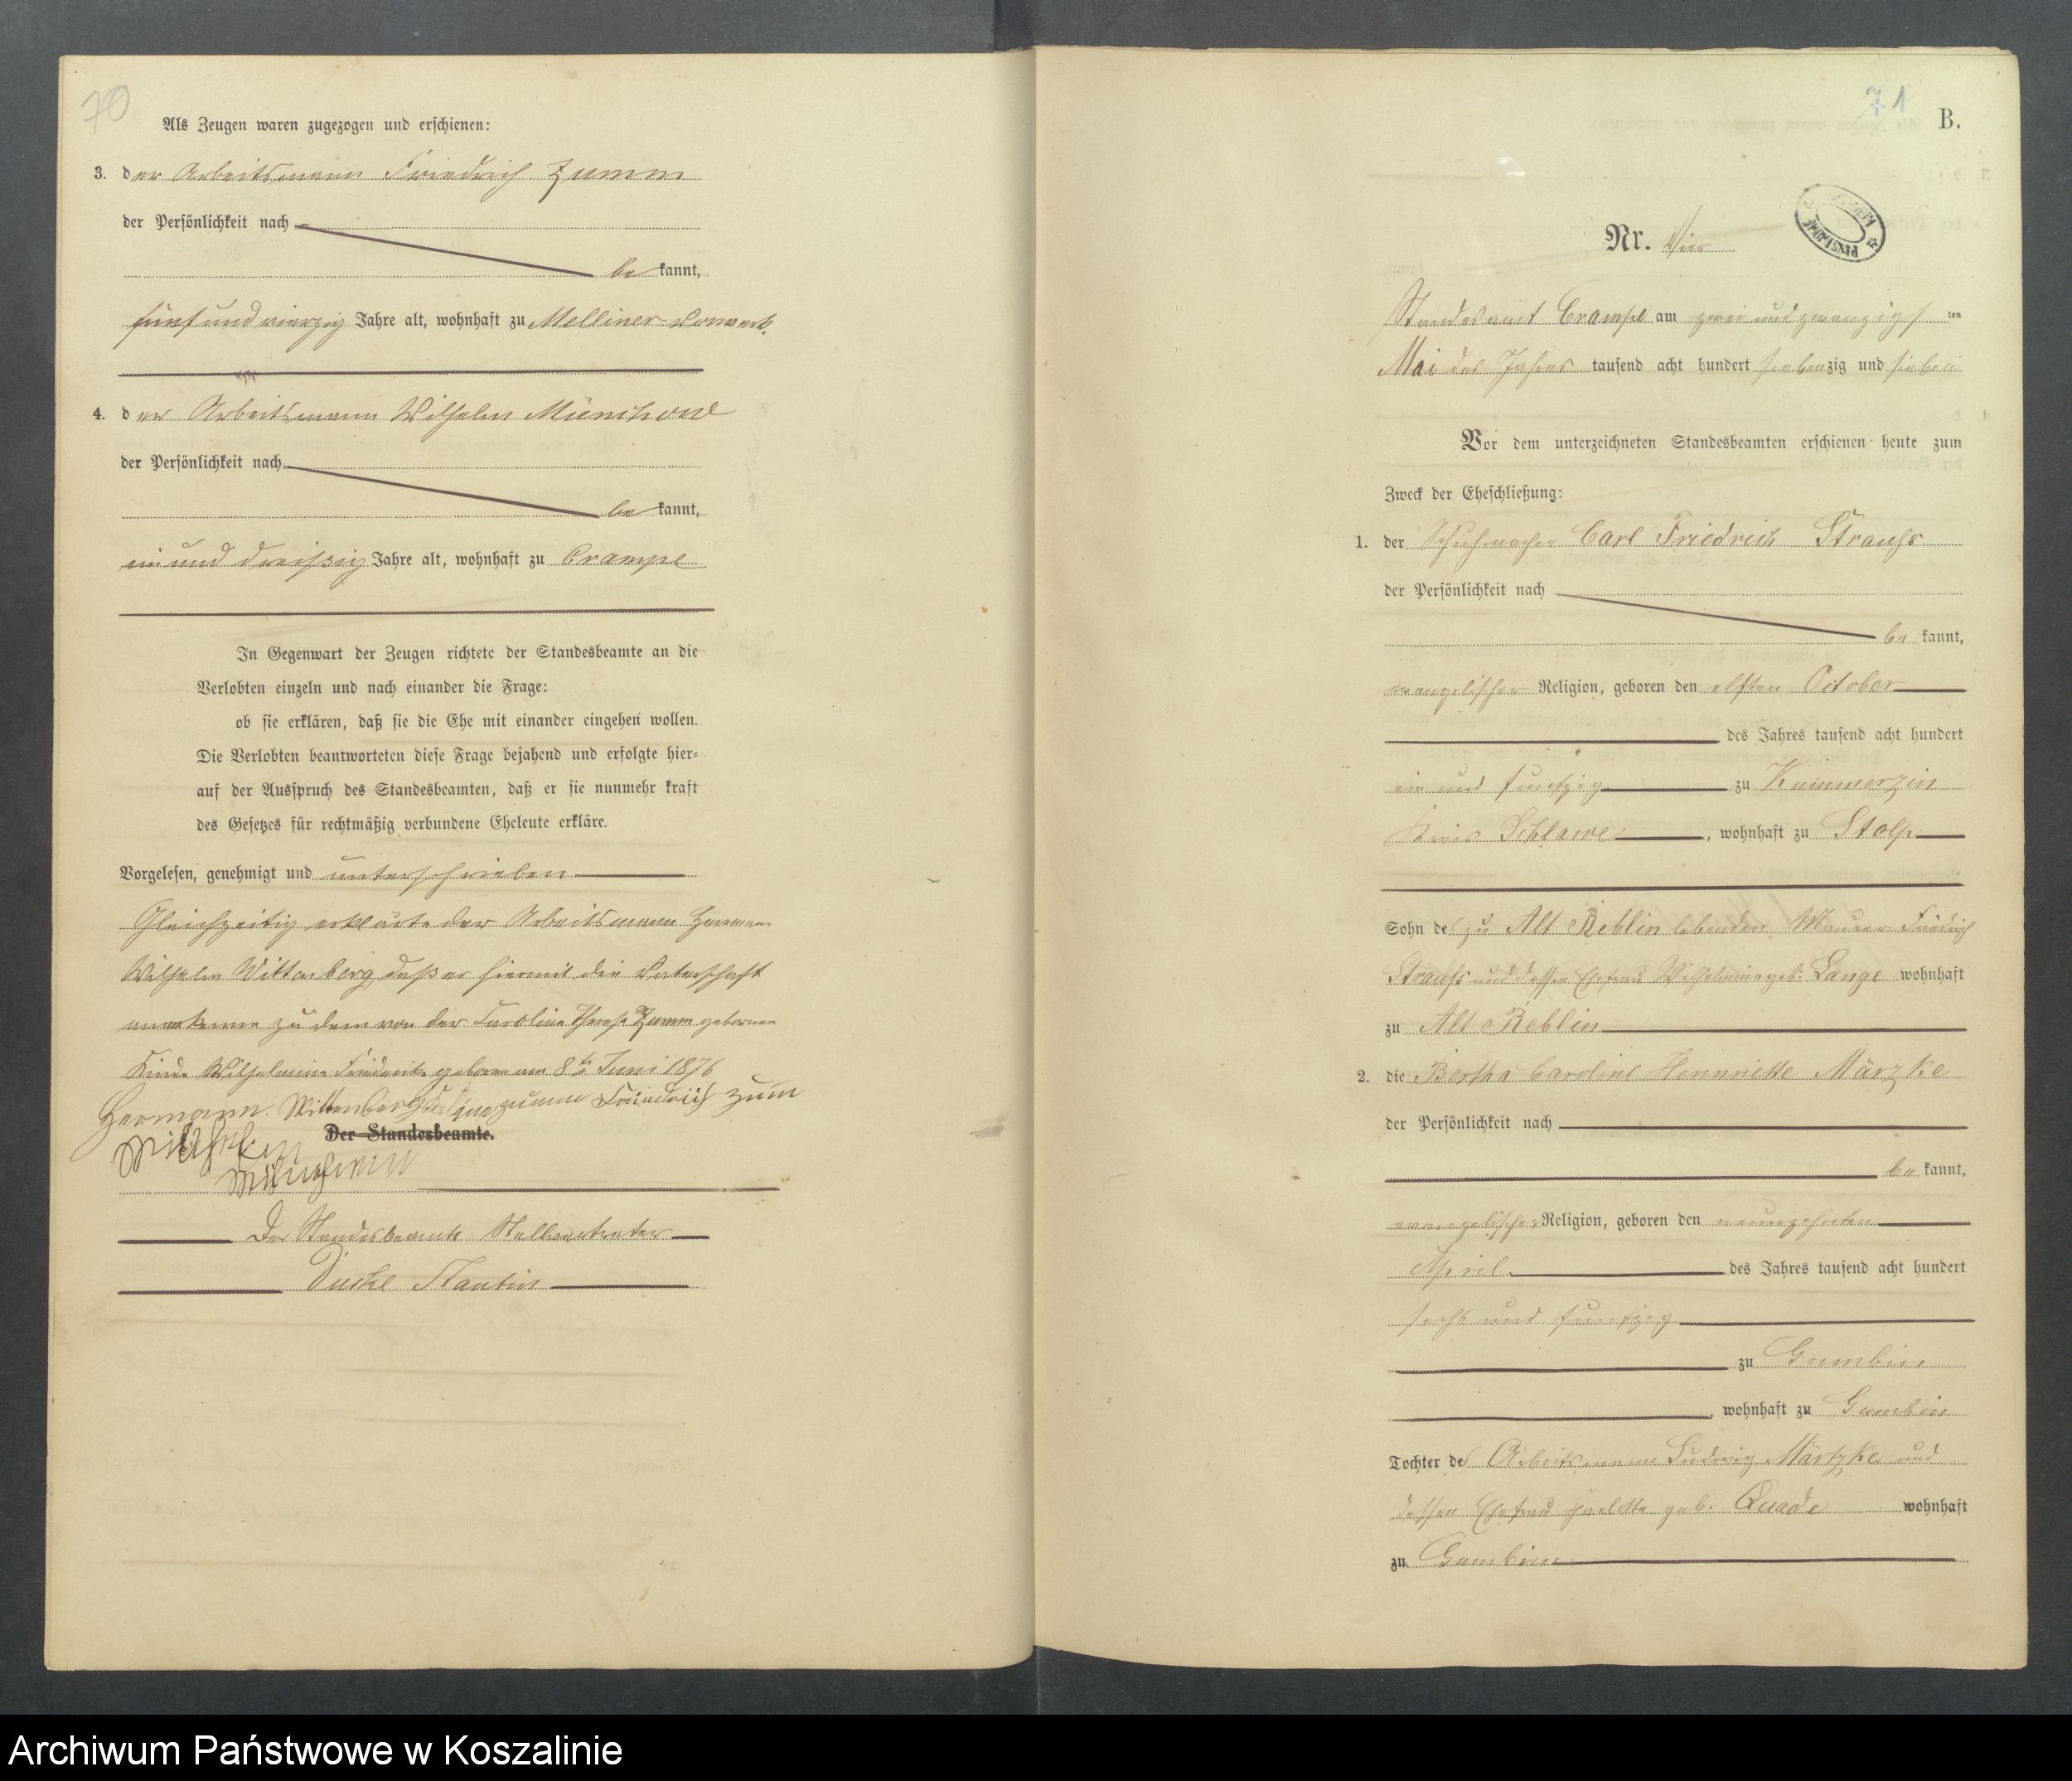 70
Als Zeugen waren zugezogen und erschienen:
3. der Arbeitsmann Friedrich Zumm
der Persönlichkeit nach
be kannt,
fünf und vierzig Jahre alt, wohnhaft zu Melliner Vorwerk
4. der Arbeitsmann Wilhelm Münchow
der Persönlichkeit nach
be kannt,
ein und dreißig Jahre alt, wohnhaft zu Crampe
In Gegenwart der Zeugen richtete der Standesbeamte an die
Verlobten einzeln und nach einander die Frage:
ob sie erklären, daß sie die Ehe mit einander eingehen wollen.
Die Verlobten beantworteten diese Frage bejahend und erfolgte hier-
auf der Ausspruch des Standesbeamten, daß er sie nunmehr kraft
des Gesetzes für rechtmäßig verbundene Eheleute erkläre.
Vorgelesen, genehmigt und unterschrieben
Gleichzeitig erklärte der Arbeitsmann Hermann
Wilhelm Wittenberg, daß er hiermit die Vaterschaft
anerkenne zu dem von der Caroline Zumm geborenen
Kinde Wilhelmine Friederike geboren am 8ten Juni 1876
Hermann Wittenberg Zumm Friedrich Zum
Der Standesbeamte.
Wilhelm
Münchow
Der Standesbeamte Stellvertreter
71
B.
Nr. Vier
Standesamt Crampe am zwei und zwanzigs ten
Mai des Jahres tausend acht hundert siebenzig und sieben
Vor dem unterzeichneten Standesbeamten erschienen heute zum
Zweck der Eheschließung:
1. der Schuhmacher Carl Friedrich Strauss
der Persönlichkeit nach
be kannt,
evangelischer Religion, geboren den elften October
des Jahres tausend acht hundert
ein und funfzig zu Kummerzin
Kreis Schlawe, wohnhaft zu Stolp
Sohn des zu Alt Reblin lebenden Maurer Friedrich
Strauss und dessen Ehefrau Wilhelmine geb: Lange wohnhaft
zu Alt Reblin
2. die Bertha Caroline Hennriette Märzke
der Persönlichkeit nach
be kannt,
evangelischer Religion, geboren den neunzehnten
April des Jahres tausend acht hundert
sechs und funfzig
zu Gumbin
, wohnhaft zu Gumbin
Tochter des Arbeitsmann Ludwig Märtzke und
dessen Ehefrau geb. Quade wohnhaft
zu Gumbin
Archiwum Państwowe w Koszalinie